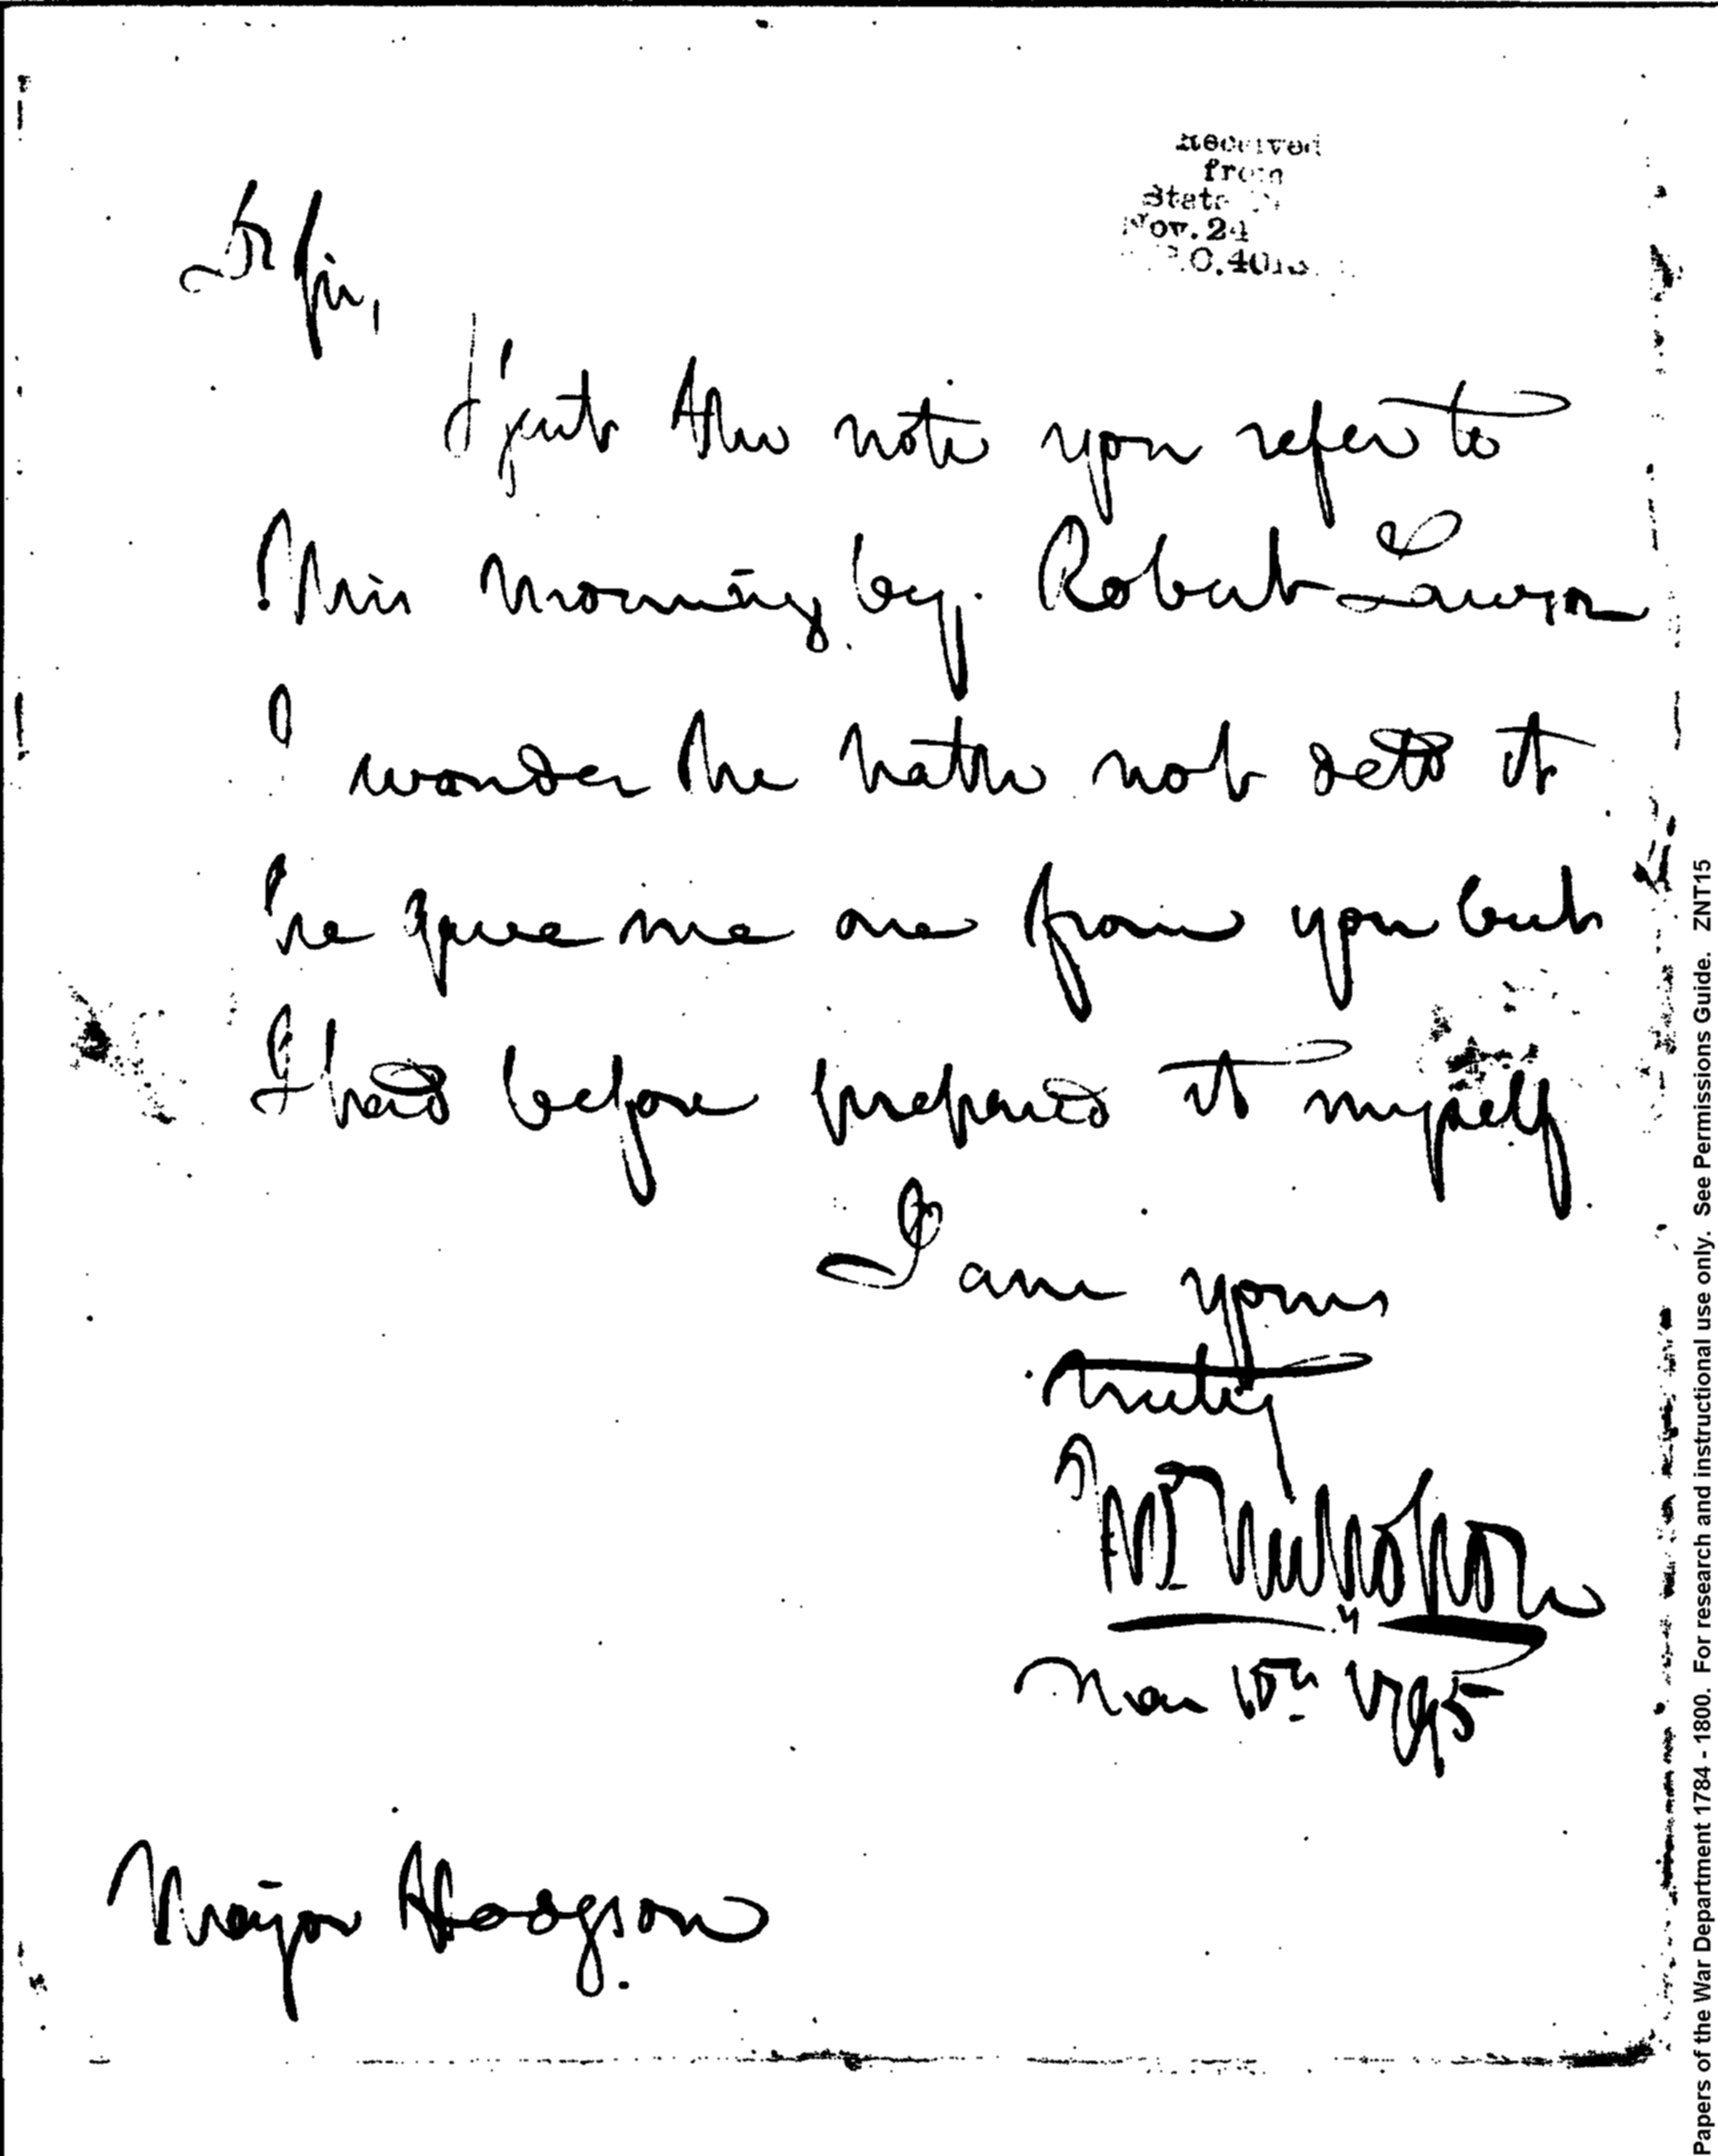 Received
from
State
Nov. 24
Dr Sir,
I put the note you refer to
this morning by Robert Lawson
I wonder he hath not deld it
he gave me one from you but
I had before prepared it myself
I am yours
truly
Wm Nicholson
Mar 10th 1795
Major Hodgson
Papers of the War Department 1784 - 1800. For research and instructional use only. See Permissions Guide. ZNT15